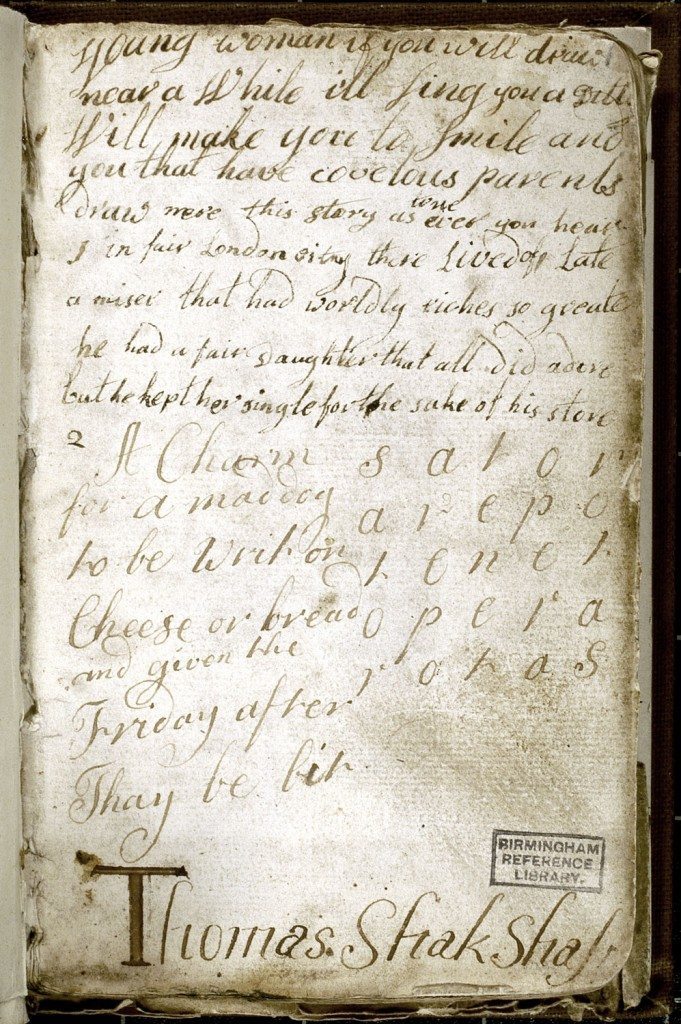 Young woman if you will draw
near a While ill sing you a
Will make you to smile and
you that have coveious parents
draw nere this story as true ever you hear
1 in fair London sity there Lived of Late
a miser that had worldly riches so greate
he had a fair Daughter that all did adore
but he kept her single for the sake of his store
2
A Charm
for a mad dog
to be Writ on
Cheese or bread
and given the
Friday after
Thay be bit
s a t o r
a r e p o
t e n e t
o p e r a
r o t a s
BIRMINGHAM
REFERENCE
LIBRARY.
Thomas. Shak